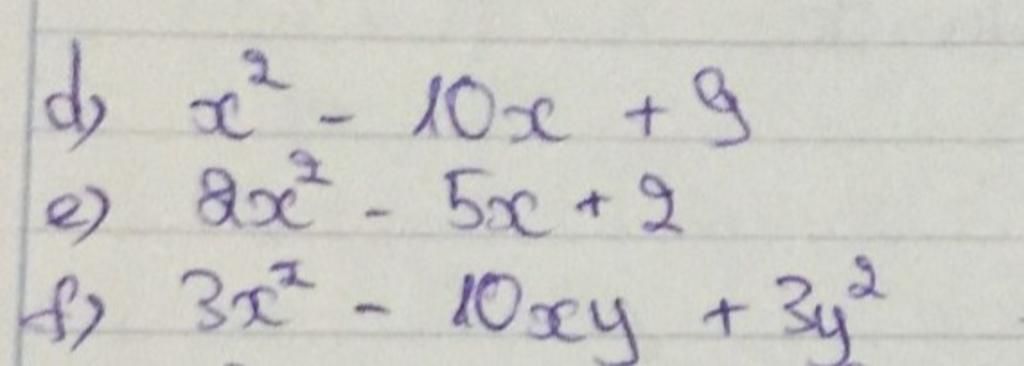 d) x² - 10x + 9
e) 2x² - 5x + 2
f) 3x² - 10xy + 3y²